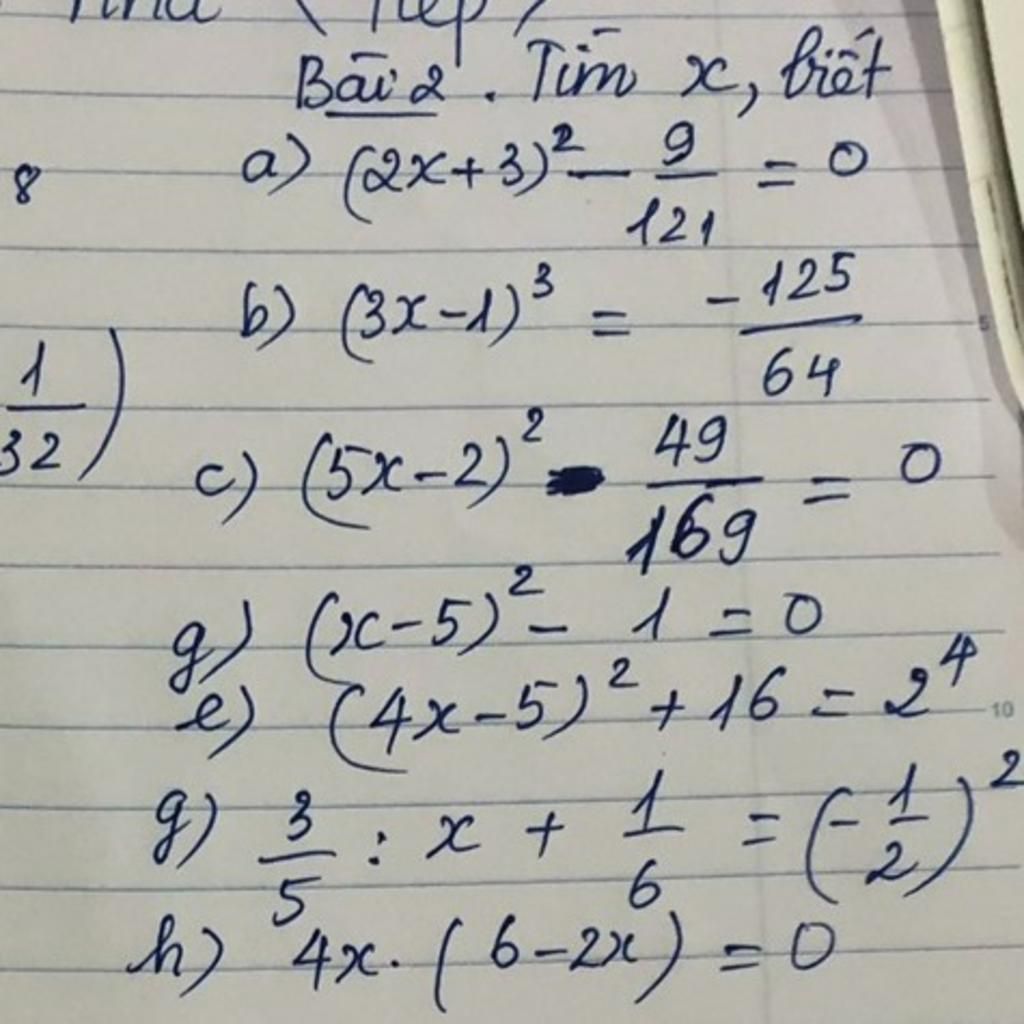 (Tiếp)
Bài 2. Tìm x, biết
8
a) (2x+3)² - 9/121 = 0
b) (3x-1)³ = -125/64
1/32)
c) (5x-2)² - 49/169 = 0
g) (x-5)² - 1 = 0
e) (4x-5)² + 16 = 2⁴
g) 3/5 : x + 1/6 = (-1/2)²
h) 4x. (6-2x) = 0
5
10